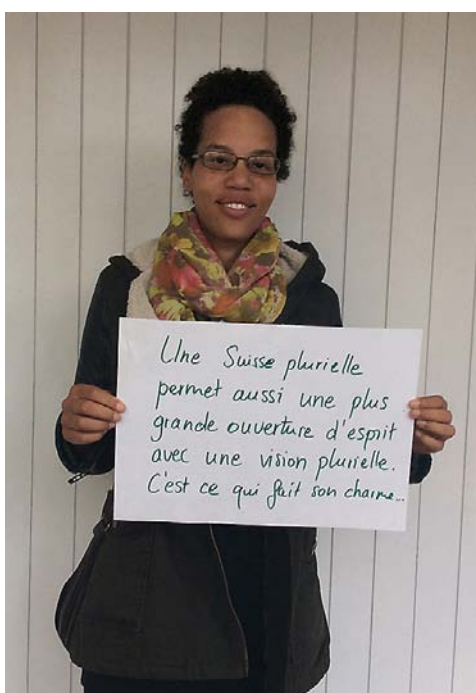 Une Suisse plurielle
permet aussi une plus
grande ouverture d'esprit
avec une vision plurielle.
C'est ce qui fait son charme...